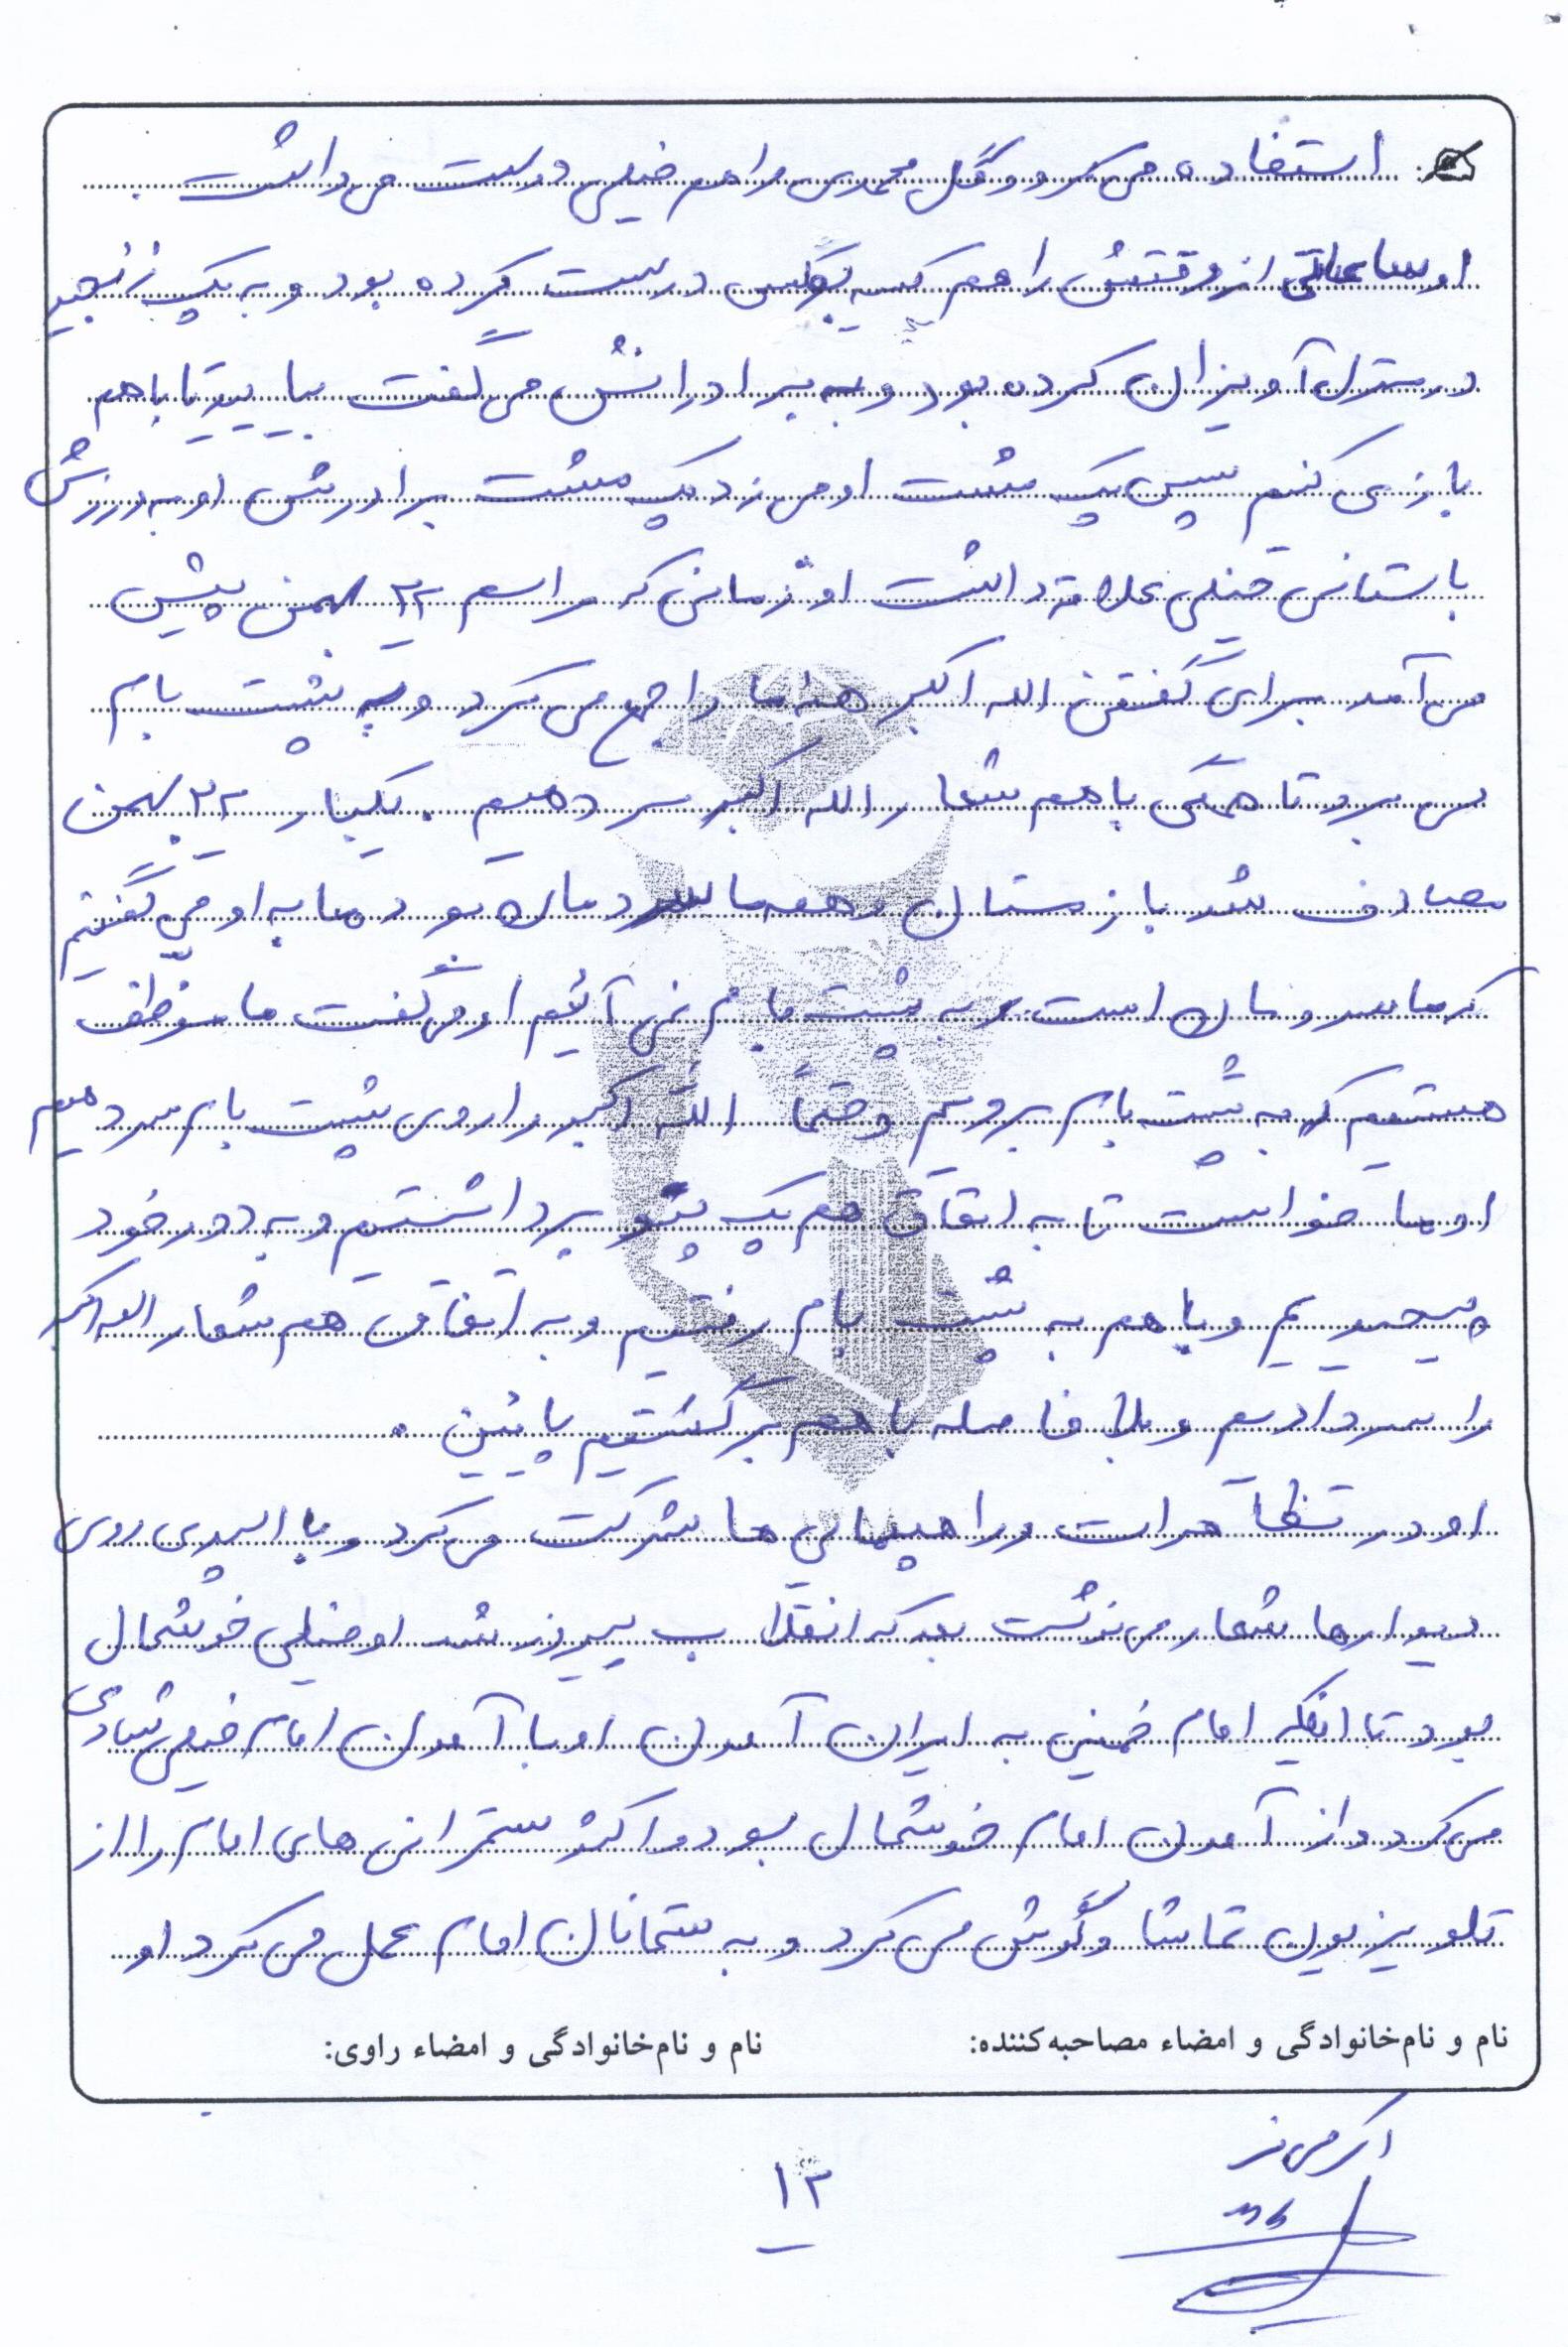 استفاده می کرد و گل محمدی را هم خیلی دوست می داشت .
او ساعاتی از وقتش را هم کیسه بوکس درست کرده بود و به یک زنجیر
در منزل آویزان کرده بود و به برادرانش می گفت بیایید تا باهم
بازی کنیم سپس یک مشت او می زد یک مشت برادرش او به ورزش
باستانی خیلی علاقه داشت او زمانی که مراسم ۲۲ بهمن پیش
می آمد برای گفتن الله اکبر همه ما را جمع می کرد و به پشت بام
می برد تا همگی باهم شعار الله اکبر سر دهیم . یکبار ۲۲ بهمن
مصادف شد با زمستان و همه ما سردمان بود و ما به او می گفتیم
که ما سردمان است و به پشت بام نمی آئیم او می گفت ما موظف
هستیم که به پشت بام برویم و حتماً الله اکبر را روی پشت بام سر دهیم
او ما خواست تا به اتفاق هم یک پتو برداشتیم و به دور خود
پیچیدیم و باهم به پشت بام رفتیم و به اتفاق هم شعار الله اکبر
را سر دادیم و بلا فاصله باهم برگشتیم پایین .
او در تظاهرات و راهپیمایی ها شرکت می کرد و با اسپری روی
دیوارها شعار می نوشت بعد که انقلاب پیروز شد او خیلی خوشحال
بود تا اینکه امام خمینی به ایران آمدن او با آمدن امام خیلی شادی
می کرد و از آمدن امام خوشحال بود و اکثر سخنرانی های امام را از
تلویزیون تماشا و گوش می کرد و به سخنان امام عمل می کرد او
نام و نام‌خانوادگی و امضاء مصاحبه‌کننده:
نام و نام‌خانوادگی و امضاء راوی:
۱۲